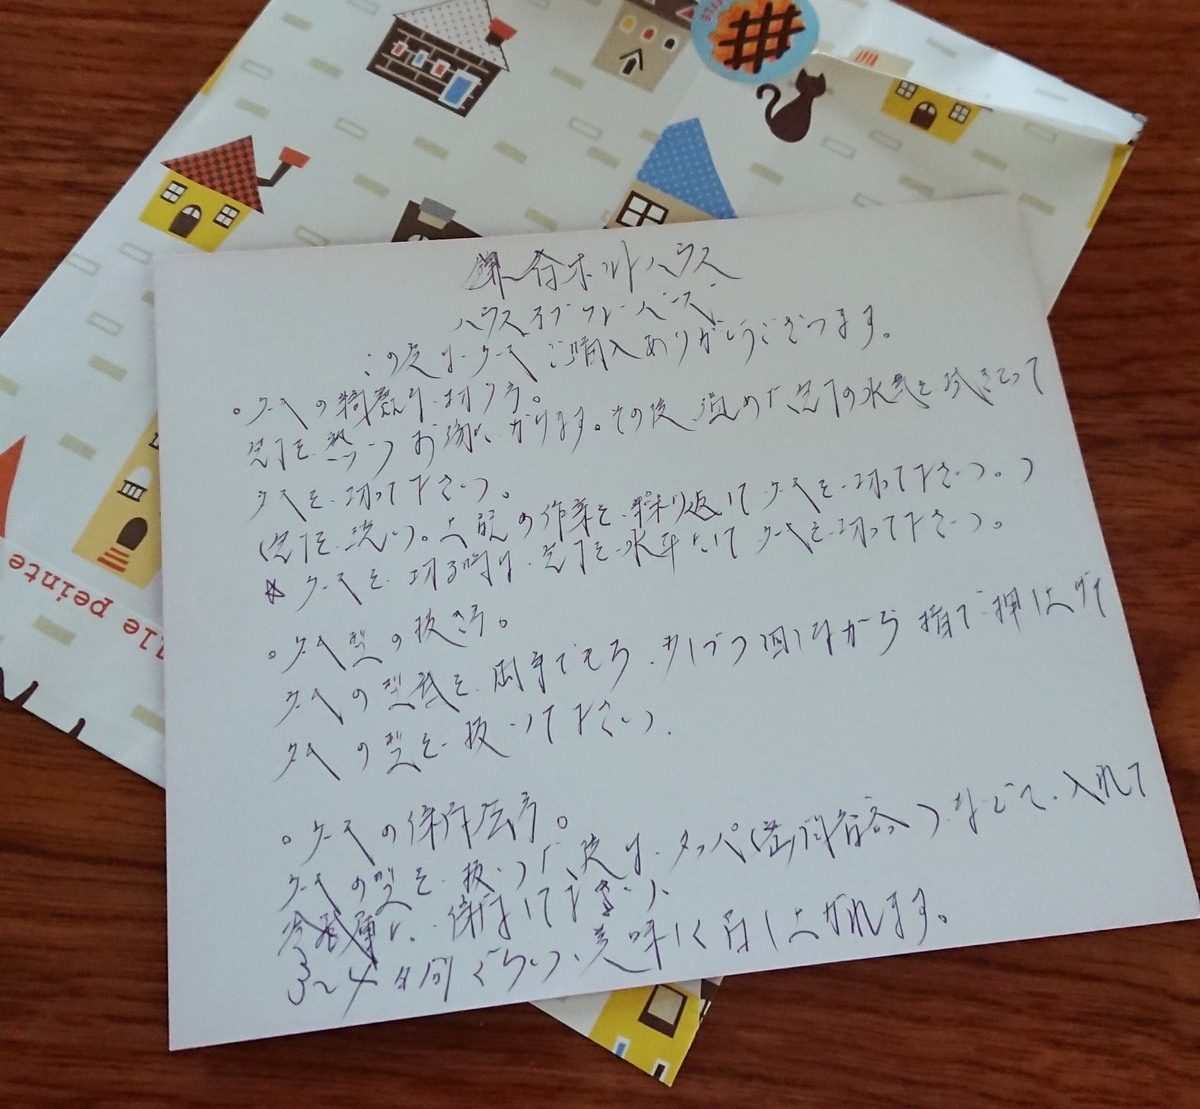 ポットハウス
ハウスオブフレーバーズ
この度は、ケーキご購入ありがとうございます。
。ケーキの綺麗な切り方。
包丁を、熱いお湯につけます。その後、温めた包丁の水気を拭きとって
ケーキを、切って下さい。
(包丁を、洗い。上記の作業を、繰り返してケーキを、切って下さい。)
☆ケーキを、切る時は、包丁を、水平にしてケーキを、切って下さい。
。ケーキ型の抜き方。
ケーキの型紙を、両手でもち、少しづつ回しながら指で押し上げて
ケーキの型を、抜いて下さい。
。ケーキの保存方。
ケーキの型を、抜いた後は、タッパ(密閉容器)などで、入れて
冷蔵庫に、保存して下さい。
3~4日間ぐらい、美味しく召し上がれます。
lle peinte